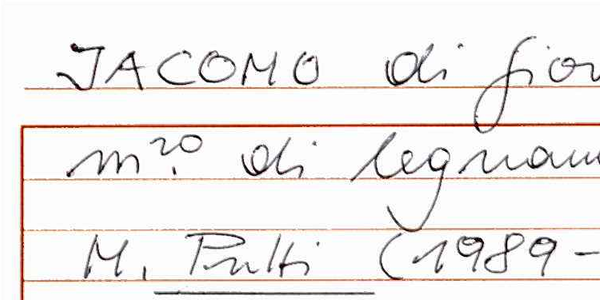 JACOMO di Gior
m.ro di legnam
M. Pulti (1989 -